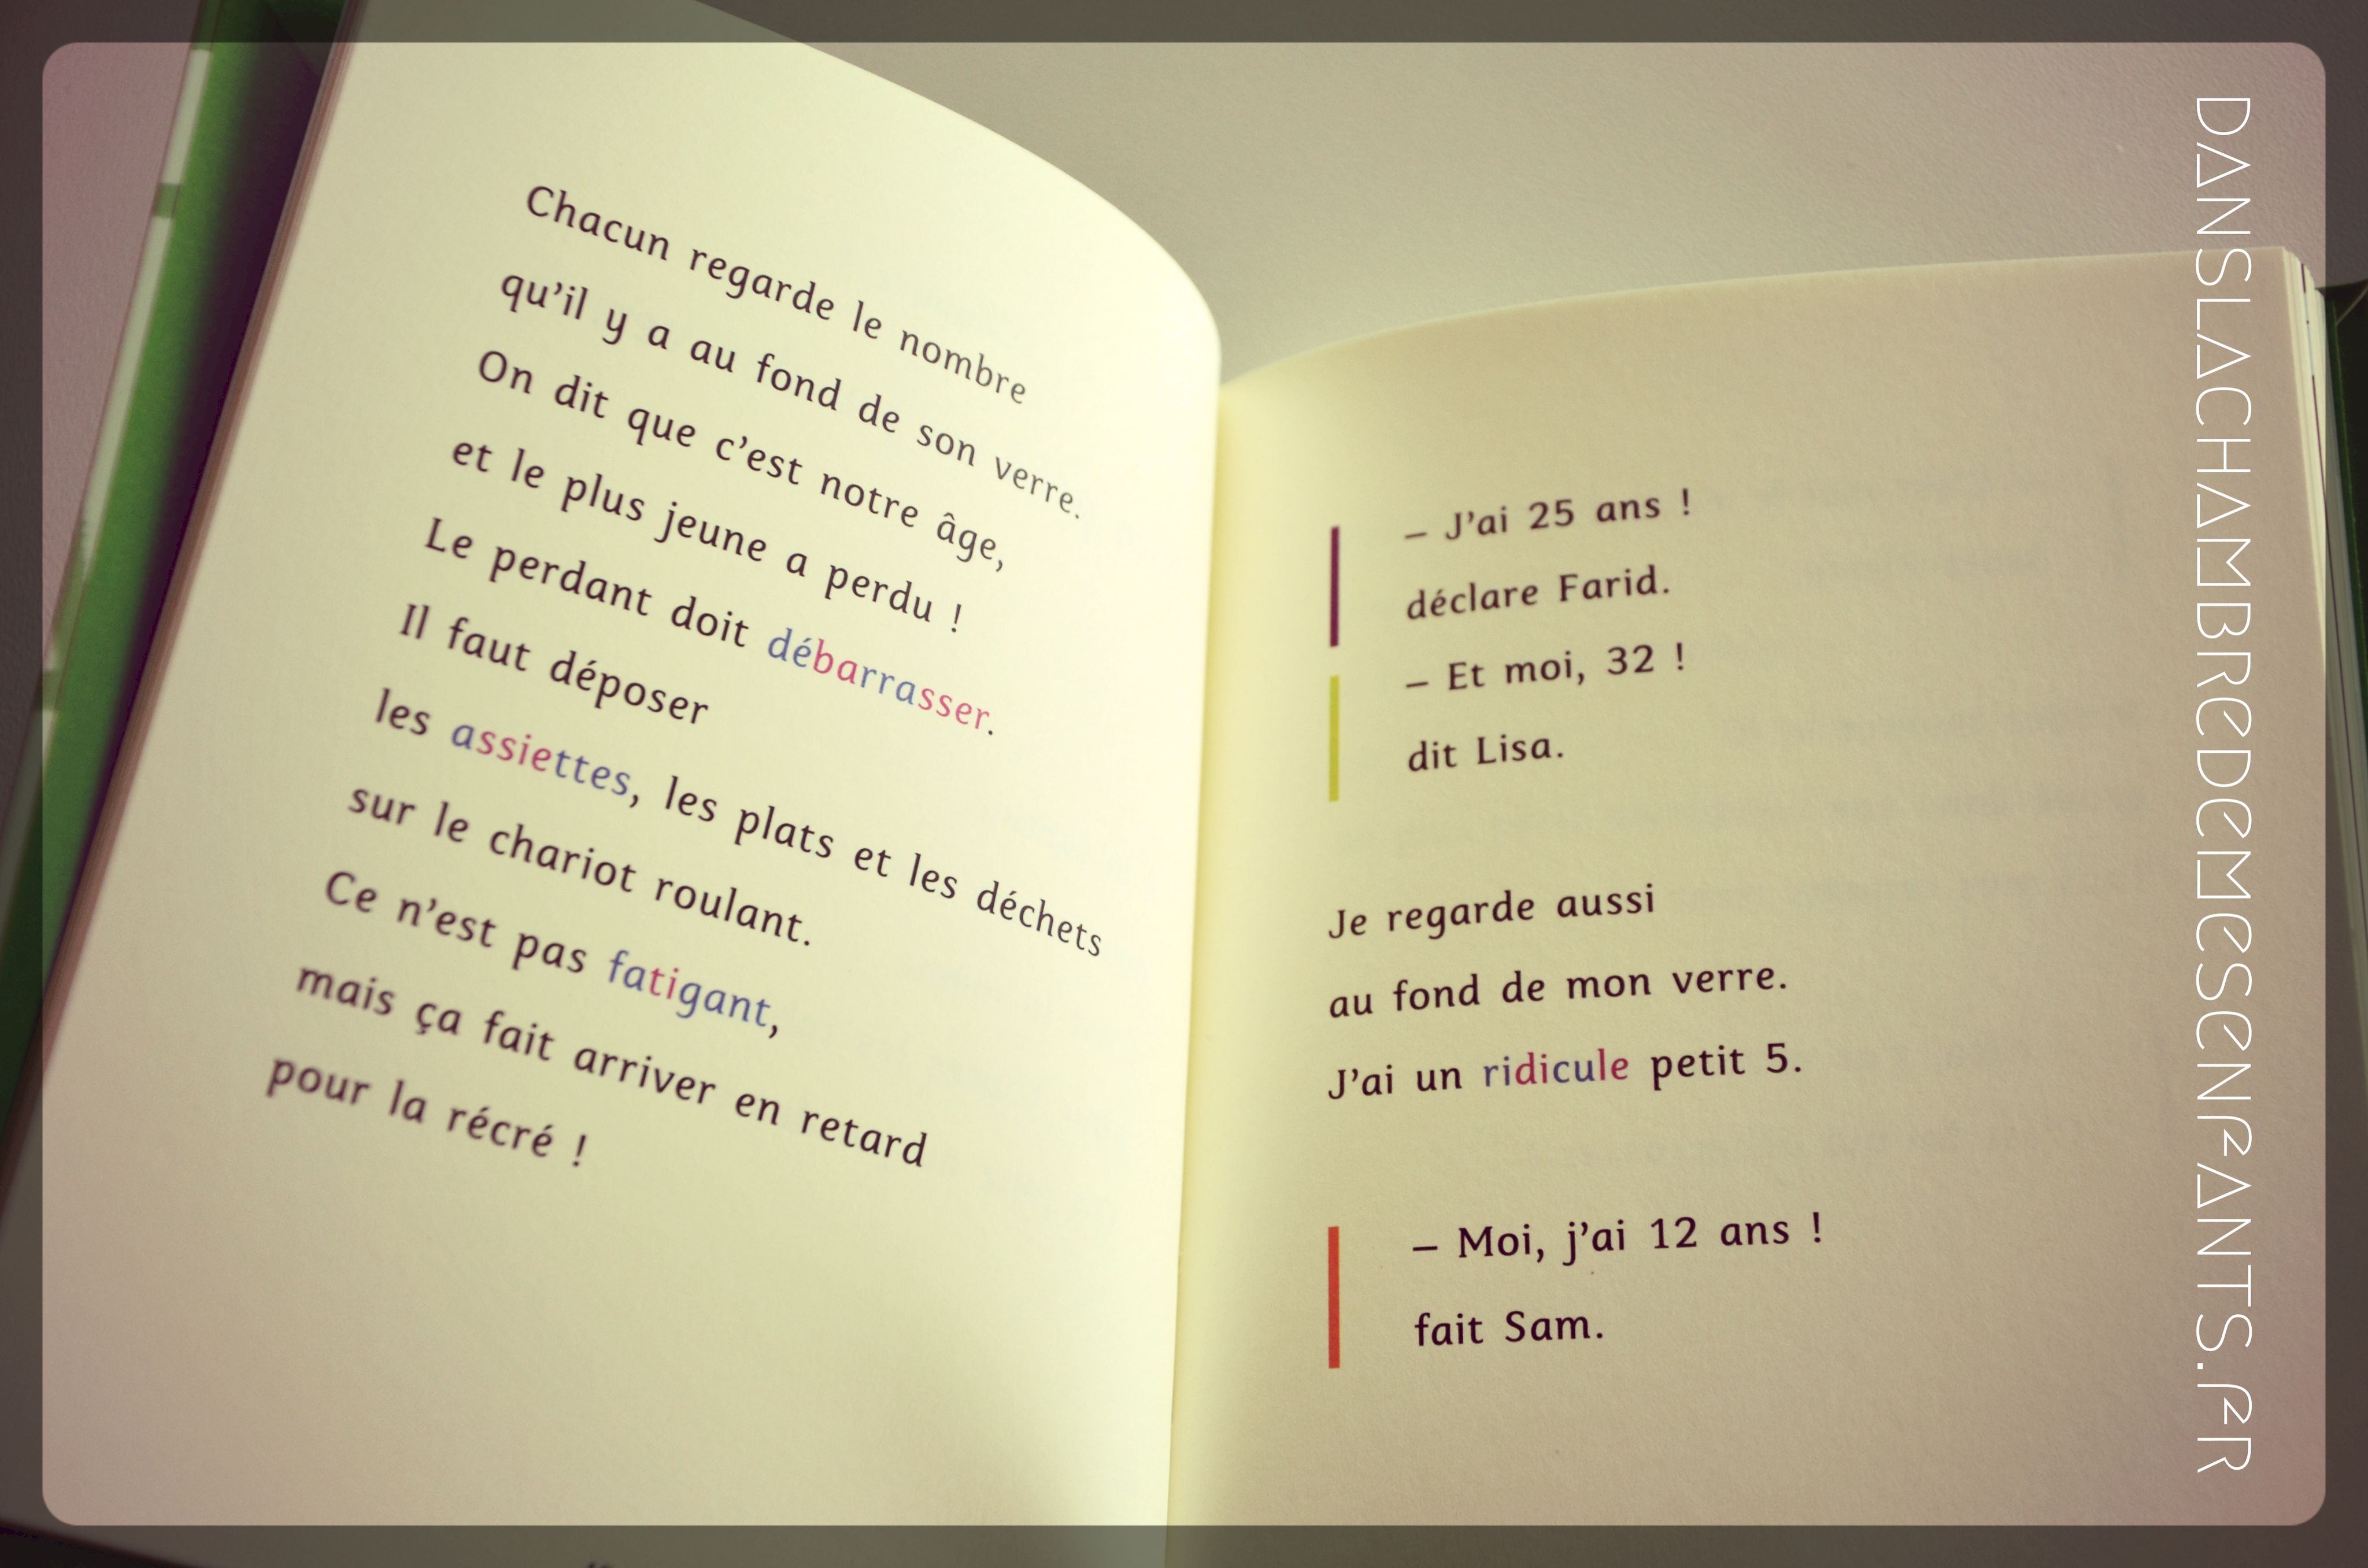 Chacun regarde le nombre
qu’il y a au fond de son verre.
On dit que c’est notre âge,
et le plus jeune a perdu !
Le perdant doit débarrasser.
Il faut déposer
les assiettes, les plats et les déchets
sur le chariot roulant.
Ce n’est pas fatigant,
mais ça fait arriver en retard
pour la récré !
– J’ai 25 ans !
déclare Farid.
– Et moi, 32 !
dit Lisa.
Je regarde aussi
au fond de mon verre.
J’ai un ridicule petit 5.
– Moi, j’ai 12 ans !
fait Sam.
DANSLACHAMBREDEMESENFANTS.FR